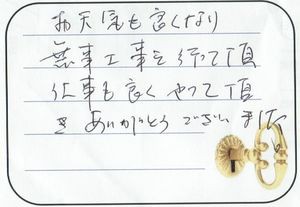 お天気も良くなり
無事工事を行って頂
仕事も良くやって頂
きありがとうございました